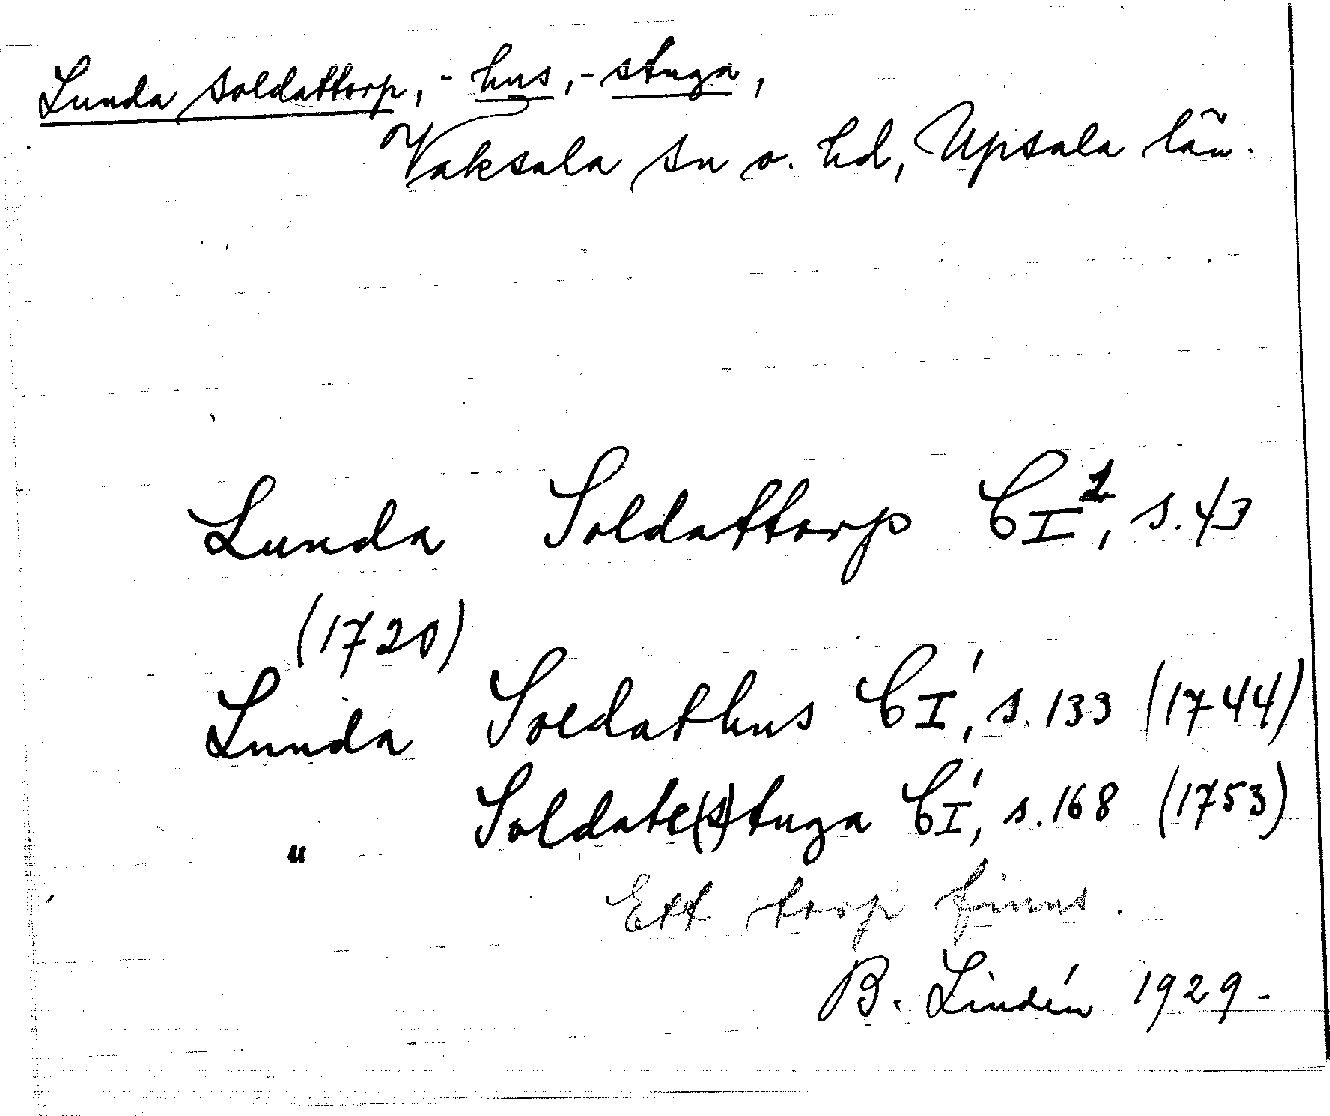 Lunda soldattorp, -hus, -stuga,
Vaksala sn o. hd, Upsala län.
Lunda Soldattorp CI¹, s. 43
(1720)
Lunda Soldathus CI¹, s. 133 (1744)
" Soldate(s)tuga CI¹, s. 168 (1753)
Ett torp finns.
B. Lindén 1929.